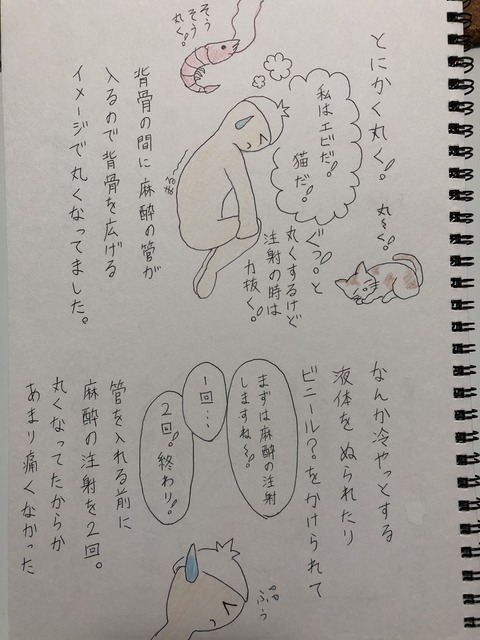 とにかく丸く。!!
丸〜く。!!
私はエビだ。
猫だ。!!
そう
そう
丸く。!!
ぐっ。。と
丸くするけど
注射の時は
力抜く。!!
まる〜
背骨の間に麻酔の管が
入るので背骨を広げる
イメージで丸くなってました。
なんか冷やっとする
液体をぬられたり
ビニール?をかけられて
まずは麻酔の注射
しますね〜!!
1回…
2回。!!終わり!!
管を入れる前に
麻酔の注射を2回。
丸くなってたからか
あまり痛くなかった
ふぅ